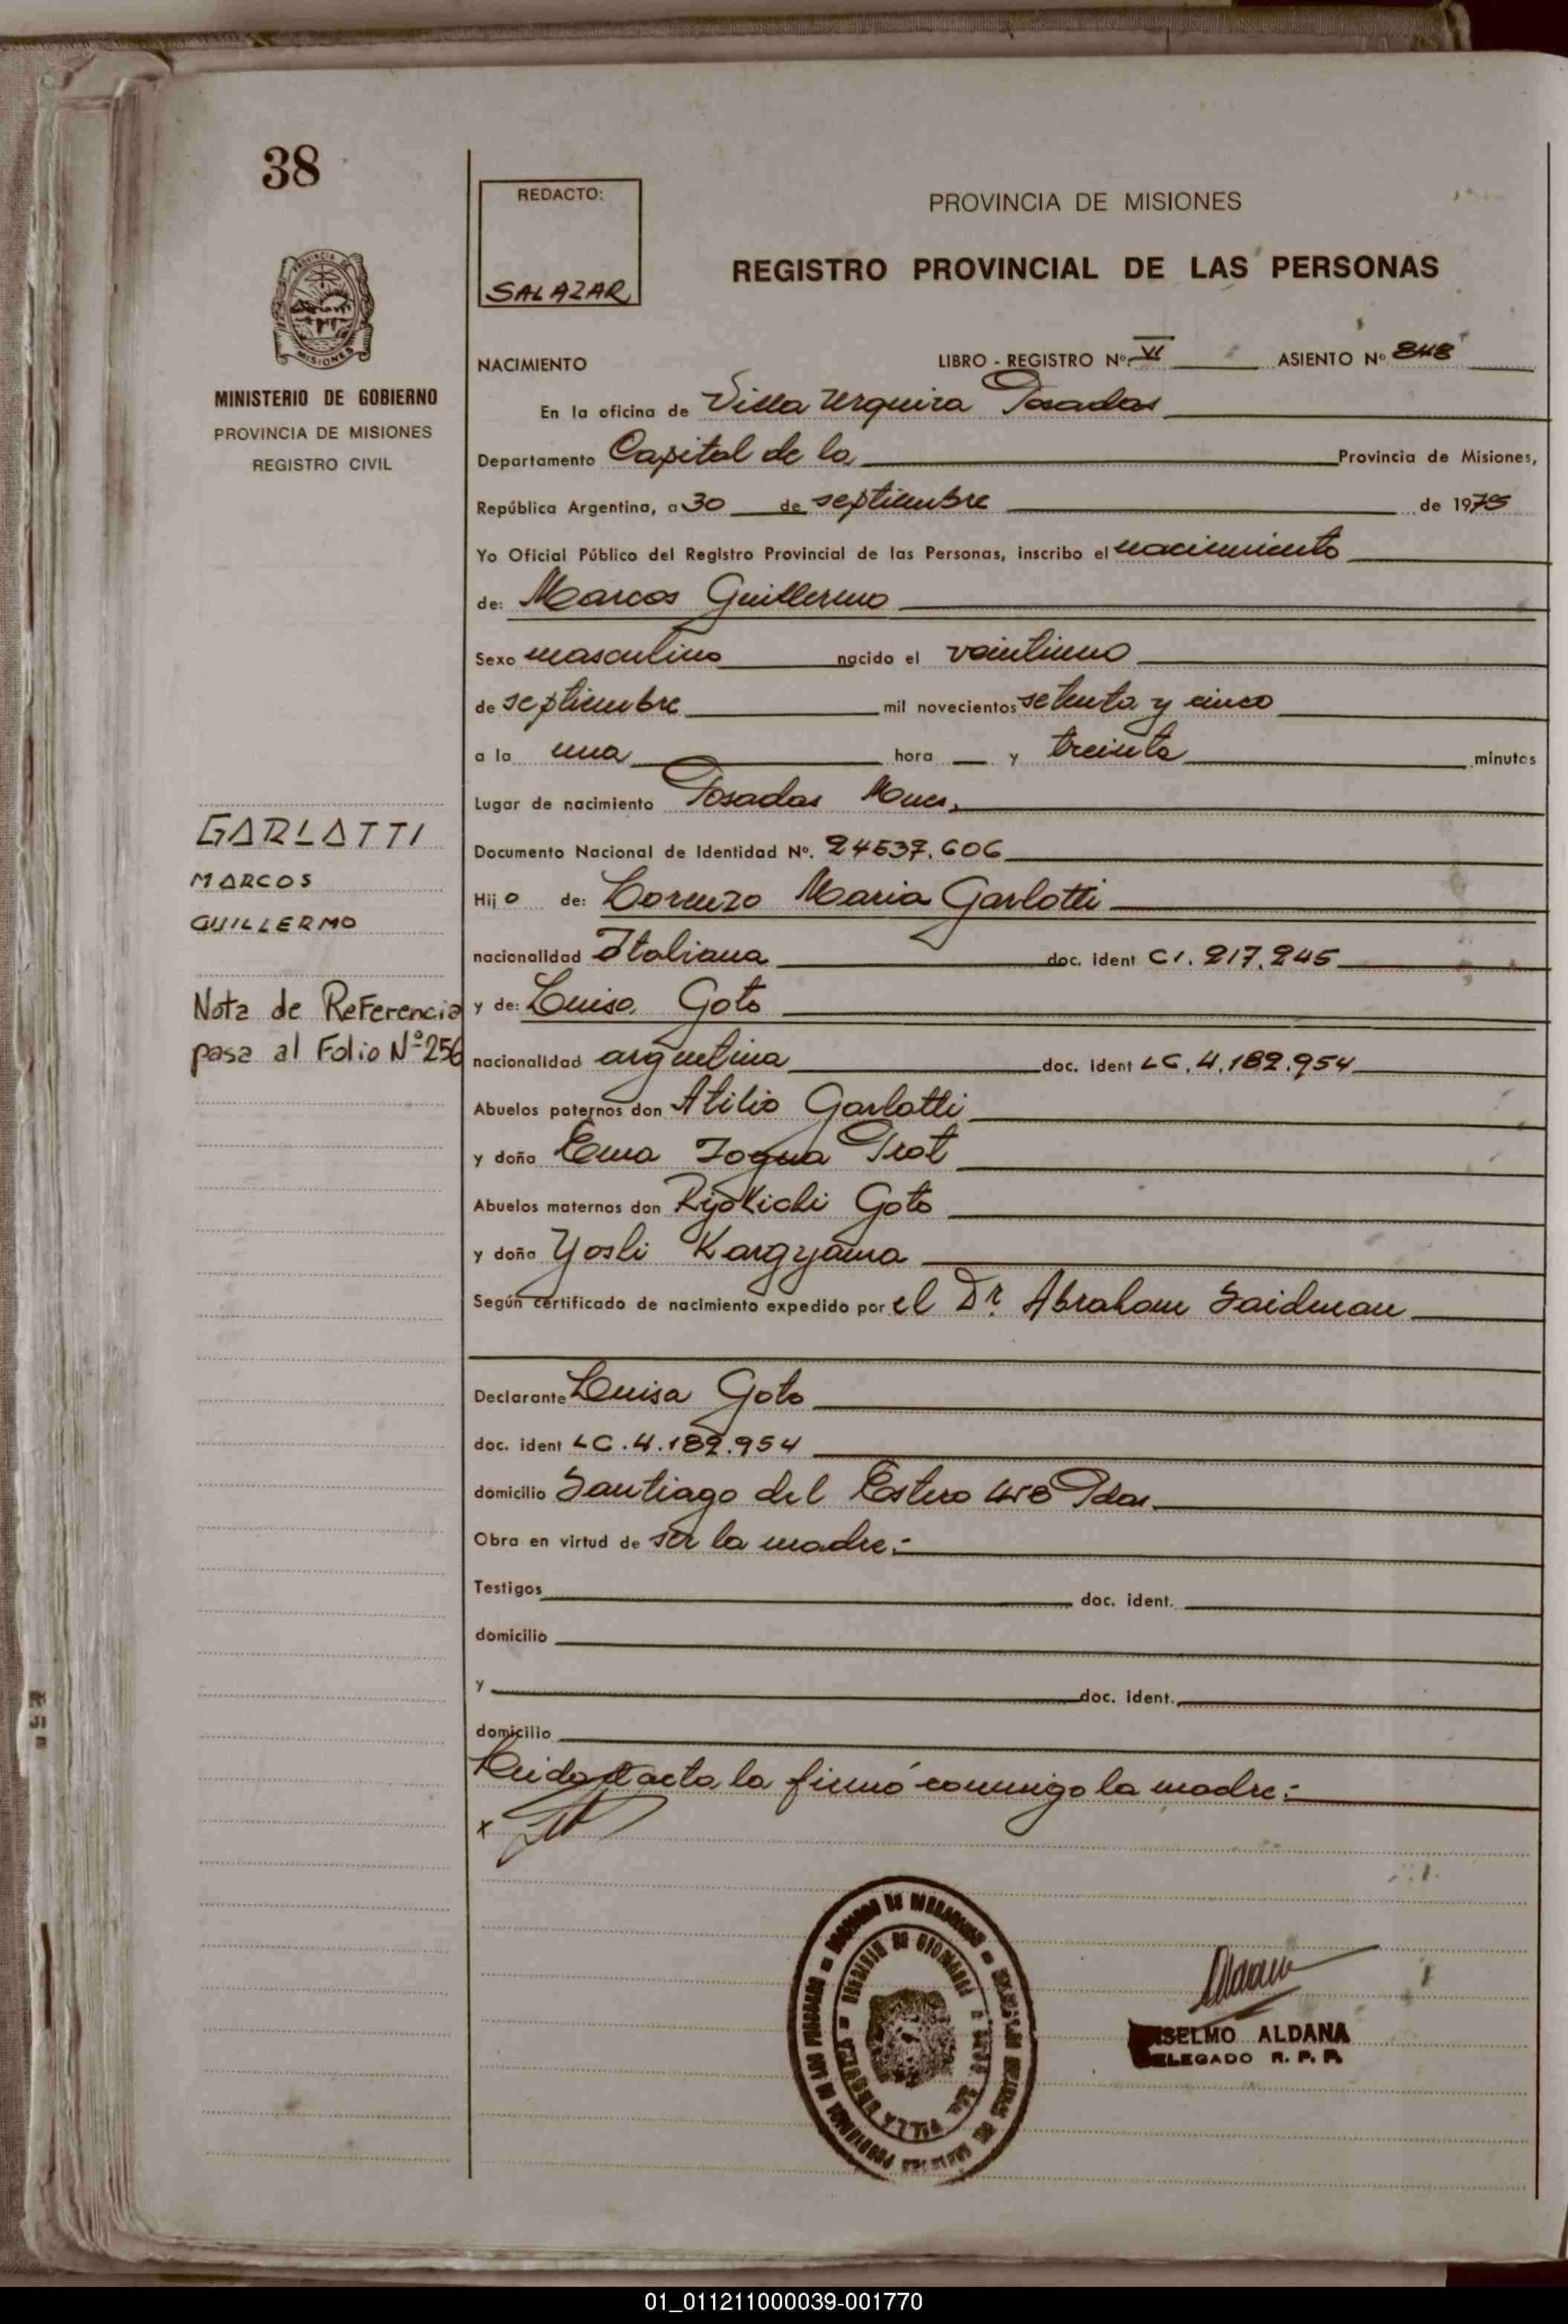 38
REDACTO:
SALAZAR
PROVINCIA DE MISIONES
REGISTRO PROVINCIAL DE LAS PERSONAS
MISIONES
MINISTERIO DE GOBIERNO
PROVINCIA DE MISIONES
REGISTRO CIVIL
NACIMIENTO LIBRO - REGISTRO Nº. VI ASIENTO Nº 848
En la oficina de Villa Urquiza Posadas
Departamento Capital de la Provincia de Misiones,
República Argentina, a 30 de septiembre de 1975
Yo Oficial Público del Registro Provincial de las Personas, inscribo el nacimiento
de: Marcos Guillermo
Sexo masculino nacido el veintiuno
de septiembre mil novecientos setenta y cinco
a la una hora y treinta minutos
Lugar de nacimiento Posadas Mnes.
Documento Nacional de Identidad Nº. 24537.606
Hijo de: Lorenzo Maria Garlatti
nacionalidad Italiana doc. ident C1. 217.245
y de: Luisa Goto
nacionalidad argentina doc. ident LC. 4.182.954
Abuelos paternos don Atilio Garlatti
y doña Ema Trot
Abuelos maternos don Ryokichi Goto
y doña Yosli Kargyama
Según certificado de nacimiento expedido por el Dr. Abraham Saidman
Declarante Luisa Goto
doc. ident LC. 4.182.954
domicilio Santiago del Estero Pdas.
Obra en virtud de ser la madre.-
Testigos doc. ident.
domicilio
y doc. ident.
domicilio
Leida el acta la firmó conmigo la madre:-
x
GARLATTI
MARCOS
GUILLERMO
Nota de Referencia
pasa al Folio Nº 256
VILLA URQUIZA
SELMO ALDANA
ELEGADO R. P. P.
01_011211000039-001770